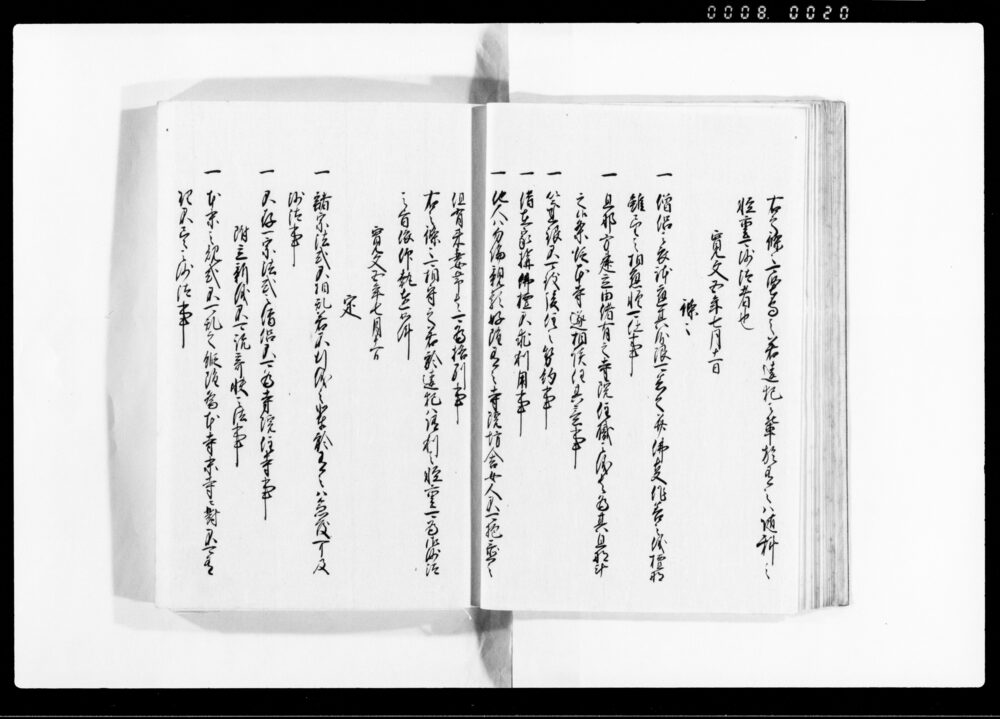 0008. 0020
右条々堅可守之若違犯之輩於有之ハ随科之
軽重可沙汰者也
寛文五年七月十一日
條々
一 僧侶之衣躰應其分限可着之并佛事作善之儀式檀那
雖望之相應軽可仕事
一 旦那方建立由緒有之寺院住職之儀者為其旦那計
之条従本寺遂相談任其意事
一 以金銀不可致後住之契約事
一 借在家構佛壇不求利用事
一 他人ハ勿論親類好雖有之寺院坊舎女人不可抱置之
但有来妻帯者可為格別事
右之條々可相守之若於違犯ハ依科之軽重可有御沙汰
之旨依仰執達如件
寛文五年七月十一日
定
一 諸宗法式不可相乱若不行儀之輩於有之ハ急度可及
沙汰事
一 不存一宗法式之僧侶不可為寺院住持事
附立新義不可説奇怪之法事
一 本末之規式不可乱之縦雖為本寺末寺ニ對不可有
理不尽之沙汰事